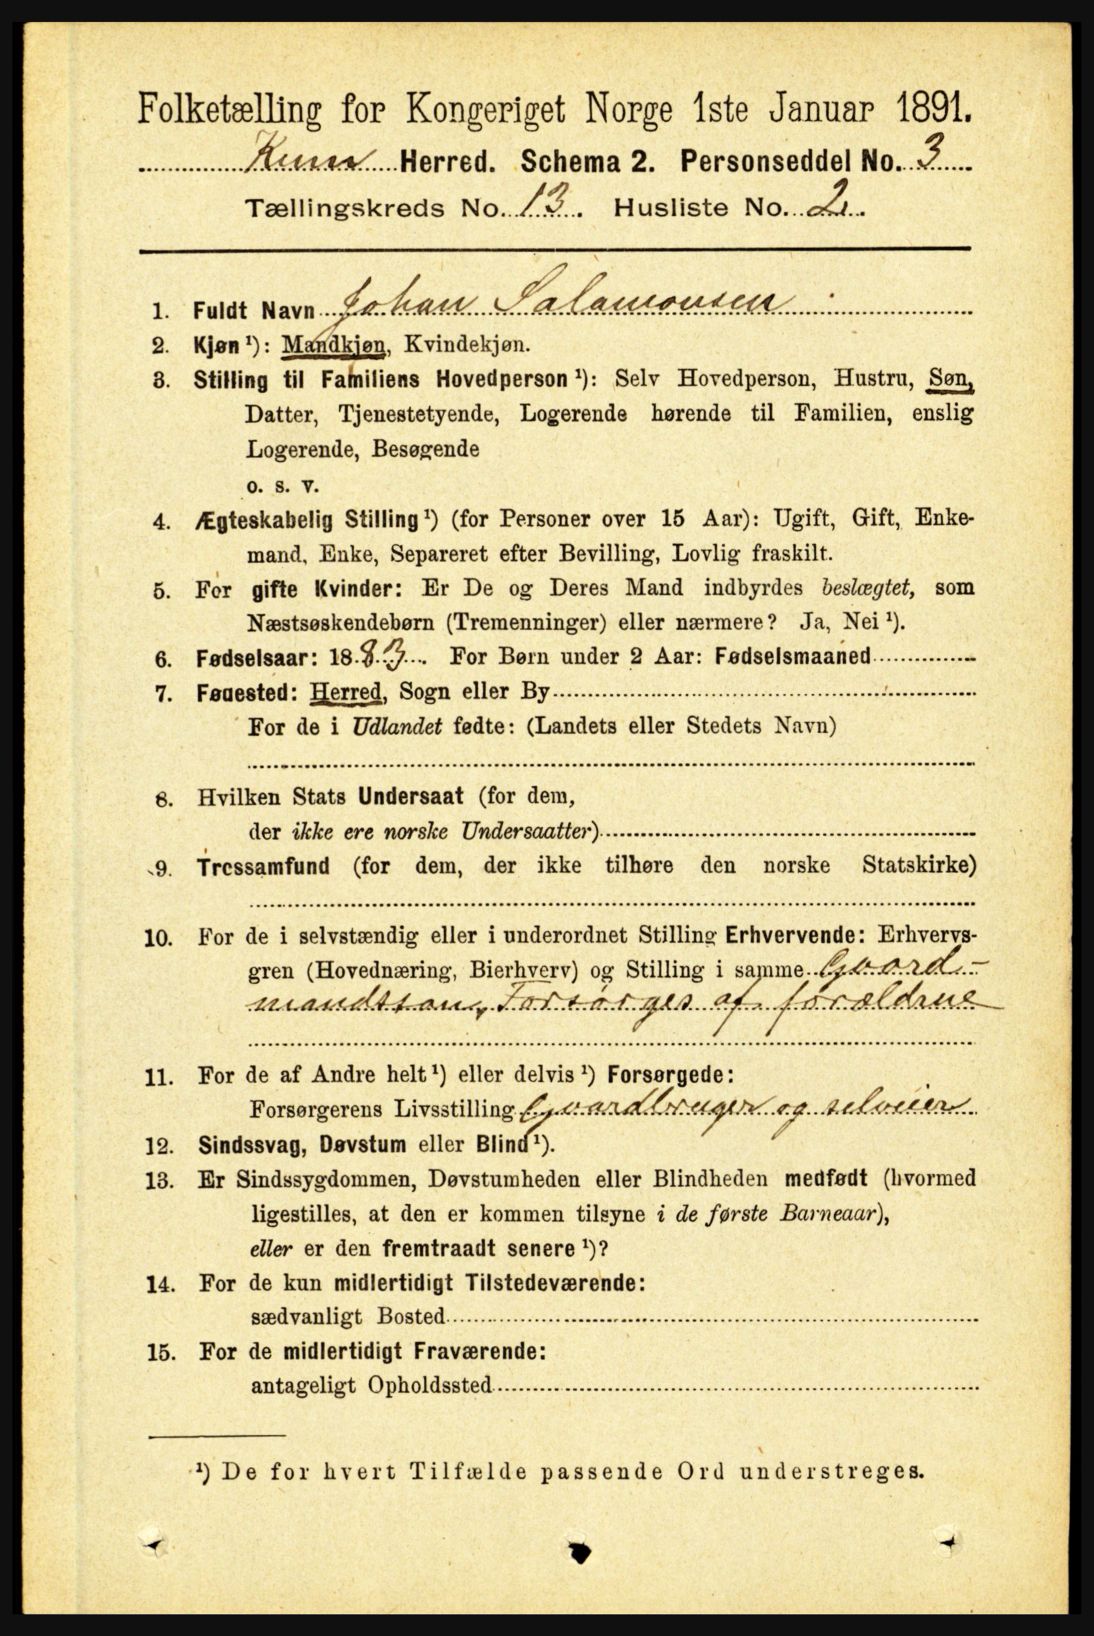 Folketælling for Kongeriget Norge 1ste Januar 1891.
Kinn Herred. Schema 2. Personseddel No. 3
Tællingskreds No. 13. Husliste No. 2.
1. Fuldt Navn Johan Salamonsen
2. Kjøn ¹): Mandkjøn, Kvindekjøn.
3. Stilling til Familiens Hovedperson ¹): Selv Hovedperson, Hustru, Søn,
Datter, Tjenestetyende, Logerende hørende til Familien, enslig
Logerende, Besøgende
o. s. v.
4. Ægteskabelig Stilling ¹) (for Personer over 15 Aar): Ugift, Gift, Enke-
mand, Enke, Separeret efter Bevilling, Lovlig fraskilt.
5. For gifte Kvinder: Er De og Deres Mand indbyrdes beslægtet, som
Næstsøskendebørn (Tremenninger) eller nærmere? Ja, Nei ¹).
6. Fødselsaar: 1883. For Børn under 2 Aar: Fødselsmaaned
7. Fødested: Herred, Sogn eller By
For de i Udlandet fødte: (Landets eller Stedets Navn)
8. Hvilken Stats Undersaat (for dem,
der ikke ere norske Undersaatter)
9. Trossamfund (for dem, der ikke tilhøre den norske Statskirke)
10. For de i selvstændig eller i underordnet Stilling Erhvervende: Erhvervs-
gren (Hovednæring, Bierhverv) og Stilling i samme Gaard-
mandssøn, Forsørges af forældrne
11. For de af Andre helt ¹) eller delvis ¹) Forsørgede:
Forsørgerens Livsstilling Gaardbruger og selveier
12. Sindssvag, Døvstum eller Blind ¹).
13. Er Sindssygdommen, Døvstumheden eller Blindheden medfødt (hvormed
ligestilles, at den er kommen tilsyne i de første Barneaar),
eller er den fremtraadt senere ¹)?
14. For de kun midlertidigt Tilstedeværende:
sædvanligt Bosted
15. For de midlertidigt Fraværende:
antageligt Opholdssted
¹) De for hvert Tilfælde passende Ord understreges.